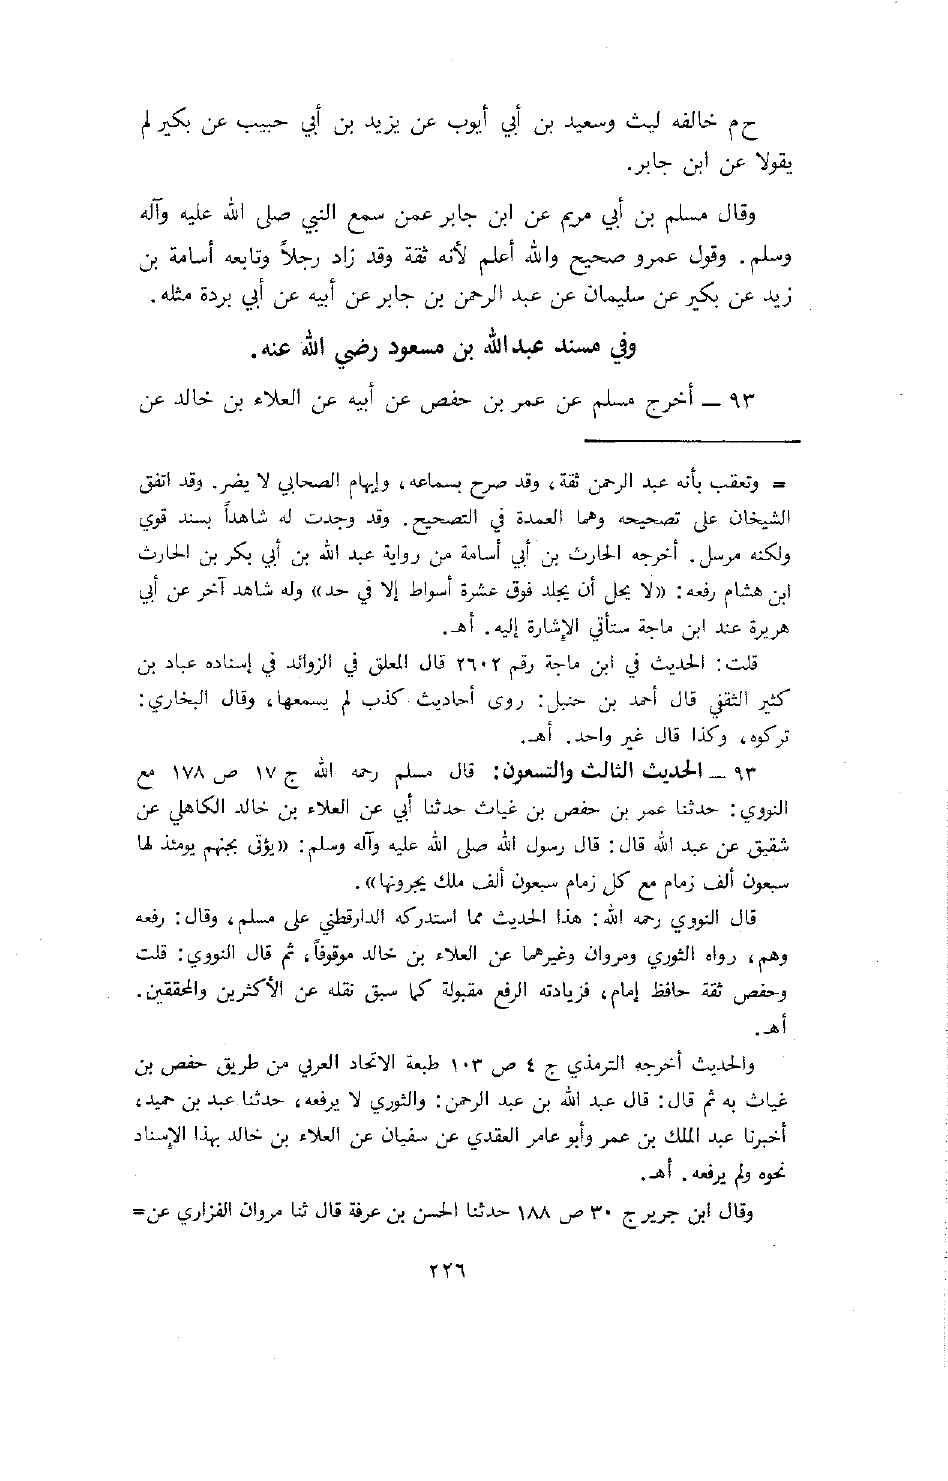 ح م خالفه ليث وسعيد بن أبي أيوب عن يزيد بن أبي حبيب عن بكير لم
يقولا عن ابن جابر.
وقال مسلم بن أبي مريم عن ابن جابر عمن سمع النبي صلى الله عليه وآله
وسلم. وقول عمرو صحيح والله أعلم لأنه ثقة وقد زاد رجلاً وتابعه أسامة بن
زيد عن بكير عن سليمان عن عبد الرحمن بن جابر عن أبيه عن أبي بردة مثله.
وفي مسند عبدالله بن مسعود رضي الله عنه.
٩٣ ــ أخرج مسلم عن عمر بن حفص عن أبيه عن العلاء بن خالد عن
= وتعقب بأنه عبد الرحمن ثقة، وقد صرح بسماعه، وإبهام الصحابي لا يضر. وقد اتفق
الشيخان على تصحيحه وهما العمدة في التصحيح. وقد وجدت له شاهداً بسند قوي
ولكنه مرسل. أخرجه الحارث بن أبي أسامة من رواية عبد الله بن أبي بكر بن الحارث
ابن هشام رفعه: «لا يحل أن يجلد فوق عشرة أسواط إلا في حد» وله شاهد آخر عن أبي
هريرة عند ابن ماجة ستأتي الإشارة إليه. أهـ.
قلت: الحديث في ابن ماجة رقم ٢٦٠٢ قال المعلق في الزوائد في إسناده عباد بن
كثير الثقفي قال أحمد بن حنبل: روى أحاديث كذب لم يسمعها، وقال البخاري:
تركوه، وكذا قال غير واحد. أهـ.
٩٣ ــ الحديث الثالث والتسعون: قال مسلم رحمه الله ج ١٧ ص ١٧٨ مع
النووي: حدثنا عمر بن حفص بن غياث حدثنا أبي عن العلاء بن خالد الكاهلي عن
شقيق عن عبد الله قال: قال رسول الله صلى الله عليه وآله وسلم: «يؤتى بجهنم يومئذ لها
سبعون ألف زمام مع كل زمام سبعون ألف ملك يجرونها».
قال النووي رحمه الله: هذا الحديث مما استدركه الدارقطني على مسلم، وقال: رفعه
وهم، رواه الثوري ومروان وغيرهما عن العلاء بن خالد موقوفاً، ثم قال النووي: قلت
وحفص ثقة حافظ إمام، فزيادته الرفع مقبولة كما سبق نقله عن الأكثرين والمحققين.
أهـ.
والحديث أخرجه الترمذي ج ٤ ص ١٠٣ طبعة الاتحاد العربي من طريق حفص بن
غياث به ثم قال: قال عبد الله بن عبد الرحمن: والثوري لا يرفعه، حدثنا عبد بن حميد،
أخبرنا عبد الملك بن عمر وأبو عامر العقدي عن سفيان عن العلاء بن خالد بهذا الإسناد
نحوه ولم يرفعه. أهـ.
وقال ابن جرير ج ٣٠ ص ١٨٨ حدثنا الحسن بن عرفة قال ثنا مروان الفزاري عن=
٢٢٦